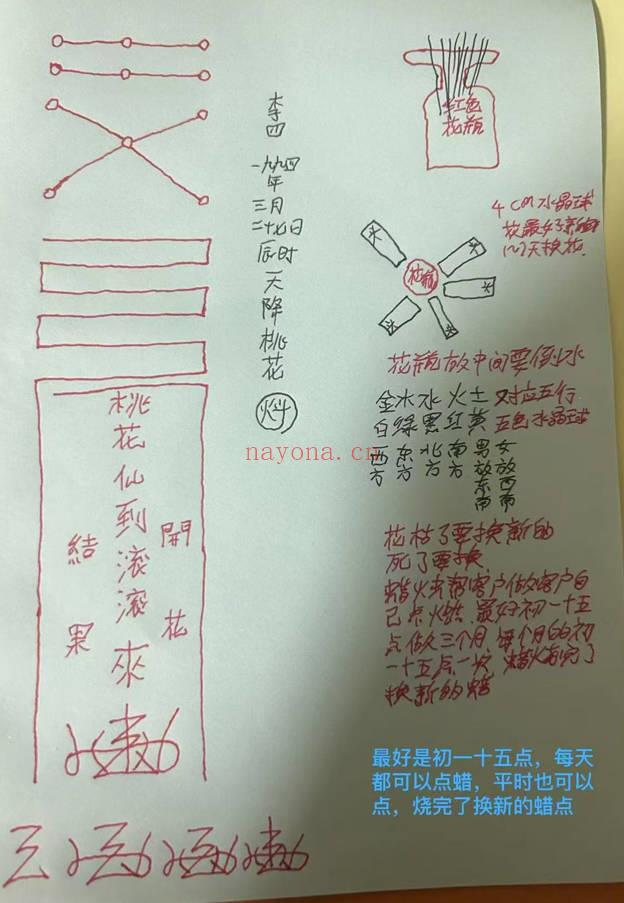 桃花仙到滚滚來
開花
結果
李四
一九九四年三月二十七日辰时天降桃花
红色
花瓶
4CM水晶球
花最好3
天换花
花瓶
花瓶放中间要倒水
金木水火土对应五行
白绿黑红黄五色水晶球
西方 东方 北方 南方 男放东南 女放西南
花枯了要换新的
死了要换
蜡火来帮客户做客户自
己点火烘.最好初一十五
点做三个月 每个月的初
一十五点一次 蜡火
了
换新的蜡
最好是初一十五点，每天
都可以点蜡，平时也可以
点，烧完了换新的蜡点
nayona.cn